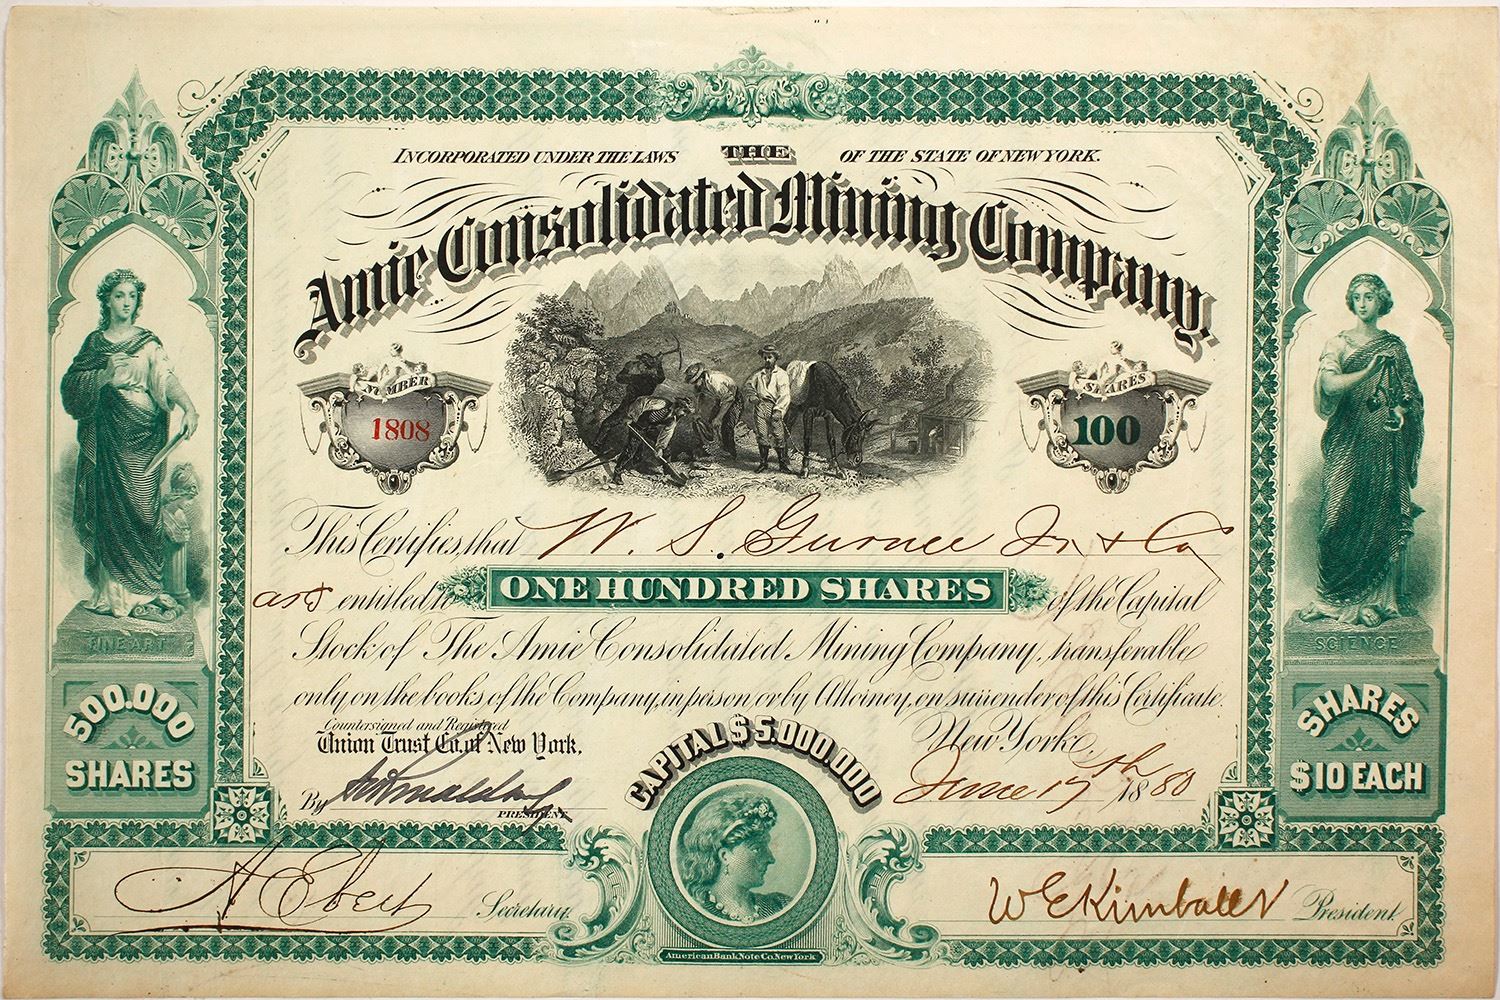 INCORPORATED UNDER THE LAWS THE OF THE STATE OF NEW YORK.
Amie Consolidated Mining Company.
NUMBER
1808
SHARES
100
This Certifies, that W. S. Gurnee Jr. & Co
entitled to ONE HUNDRED SHARES of the Capital
Stock of The Amie Consolidated Mining Company, transferable
only on the books of the Company, in person or by Attorney, on surrender of this Certificate.
FINE ART
SCIENCE
500.000
SHARES
SHARES
$10 EACH
Countersigned and Registered
Union Trust Co. of New York.
By
PRESIDENT
CAPITAL $5.000.000
New York,
June 17th 1880
A Ebert Secretary.
W E Kimball President.
American Bank Note Co. New York